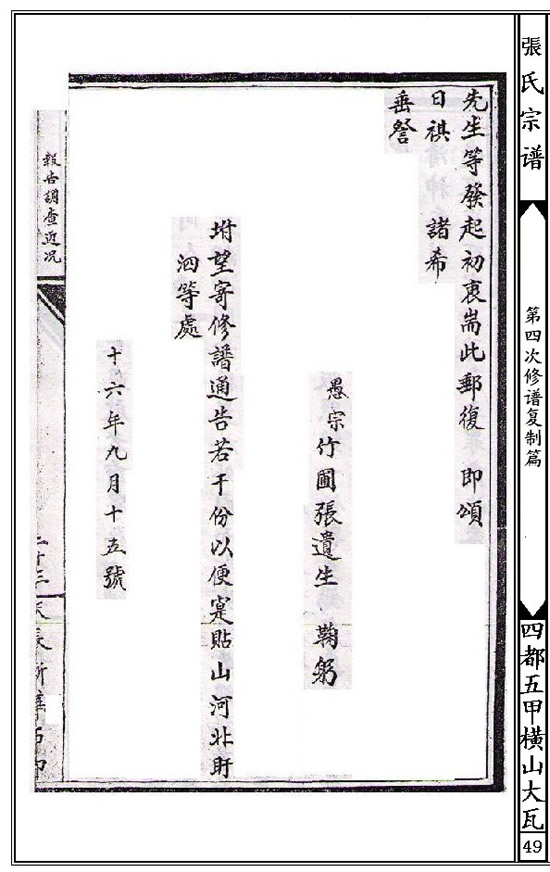 張氏宗谱
第四次修谱复制篇
四都五甲橫山大瓦
49
先生等發起初衷耑此郵復 即頌
日祺 諸希
垂詧
愚宗竹圃張遺生 鞠躬
坿望寄修譜通告若干份以便寔貼山河北盱
泗等處
十六年九月十五號
報告調查近况